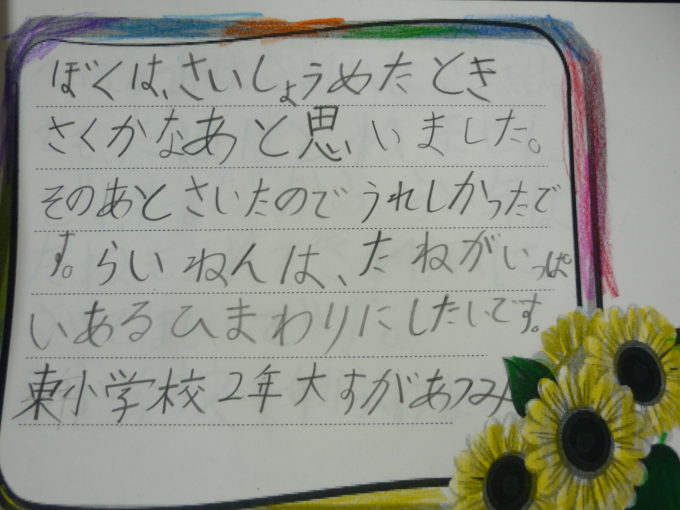 ぼくは、さいしょうめたとき
さくかなあと思いました。
そのあとさいたのでうれしかったで
す。らいねんは、たねがいっぱ
いあるひまわりにしたいです。
東小学校2年大すがあつみ